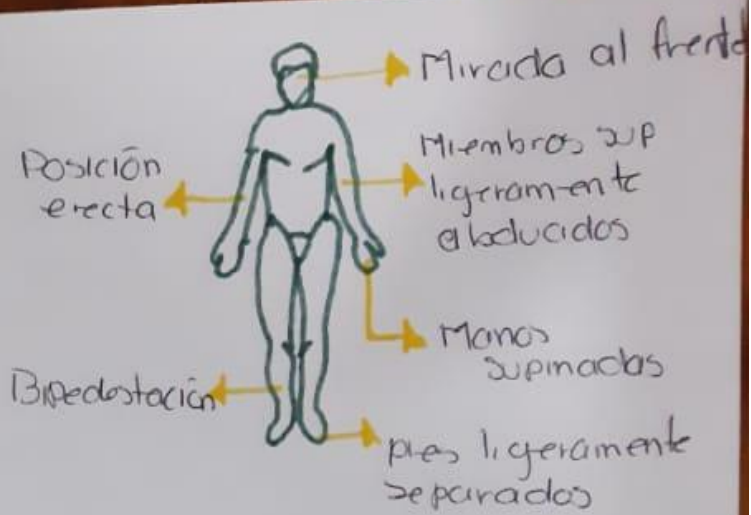 Mirada al frente
Posición
erecta
Miembros sup
ligeramente
abducidos
Manos
supinadas
Bipedestación
pies ligeramente
separados